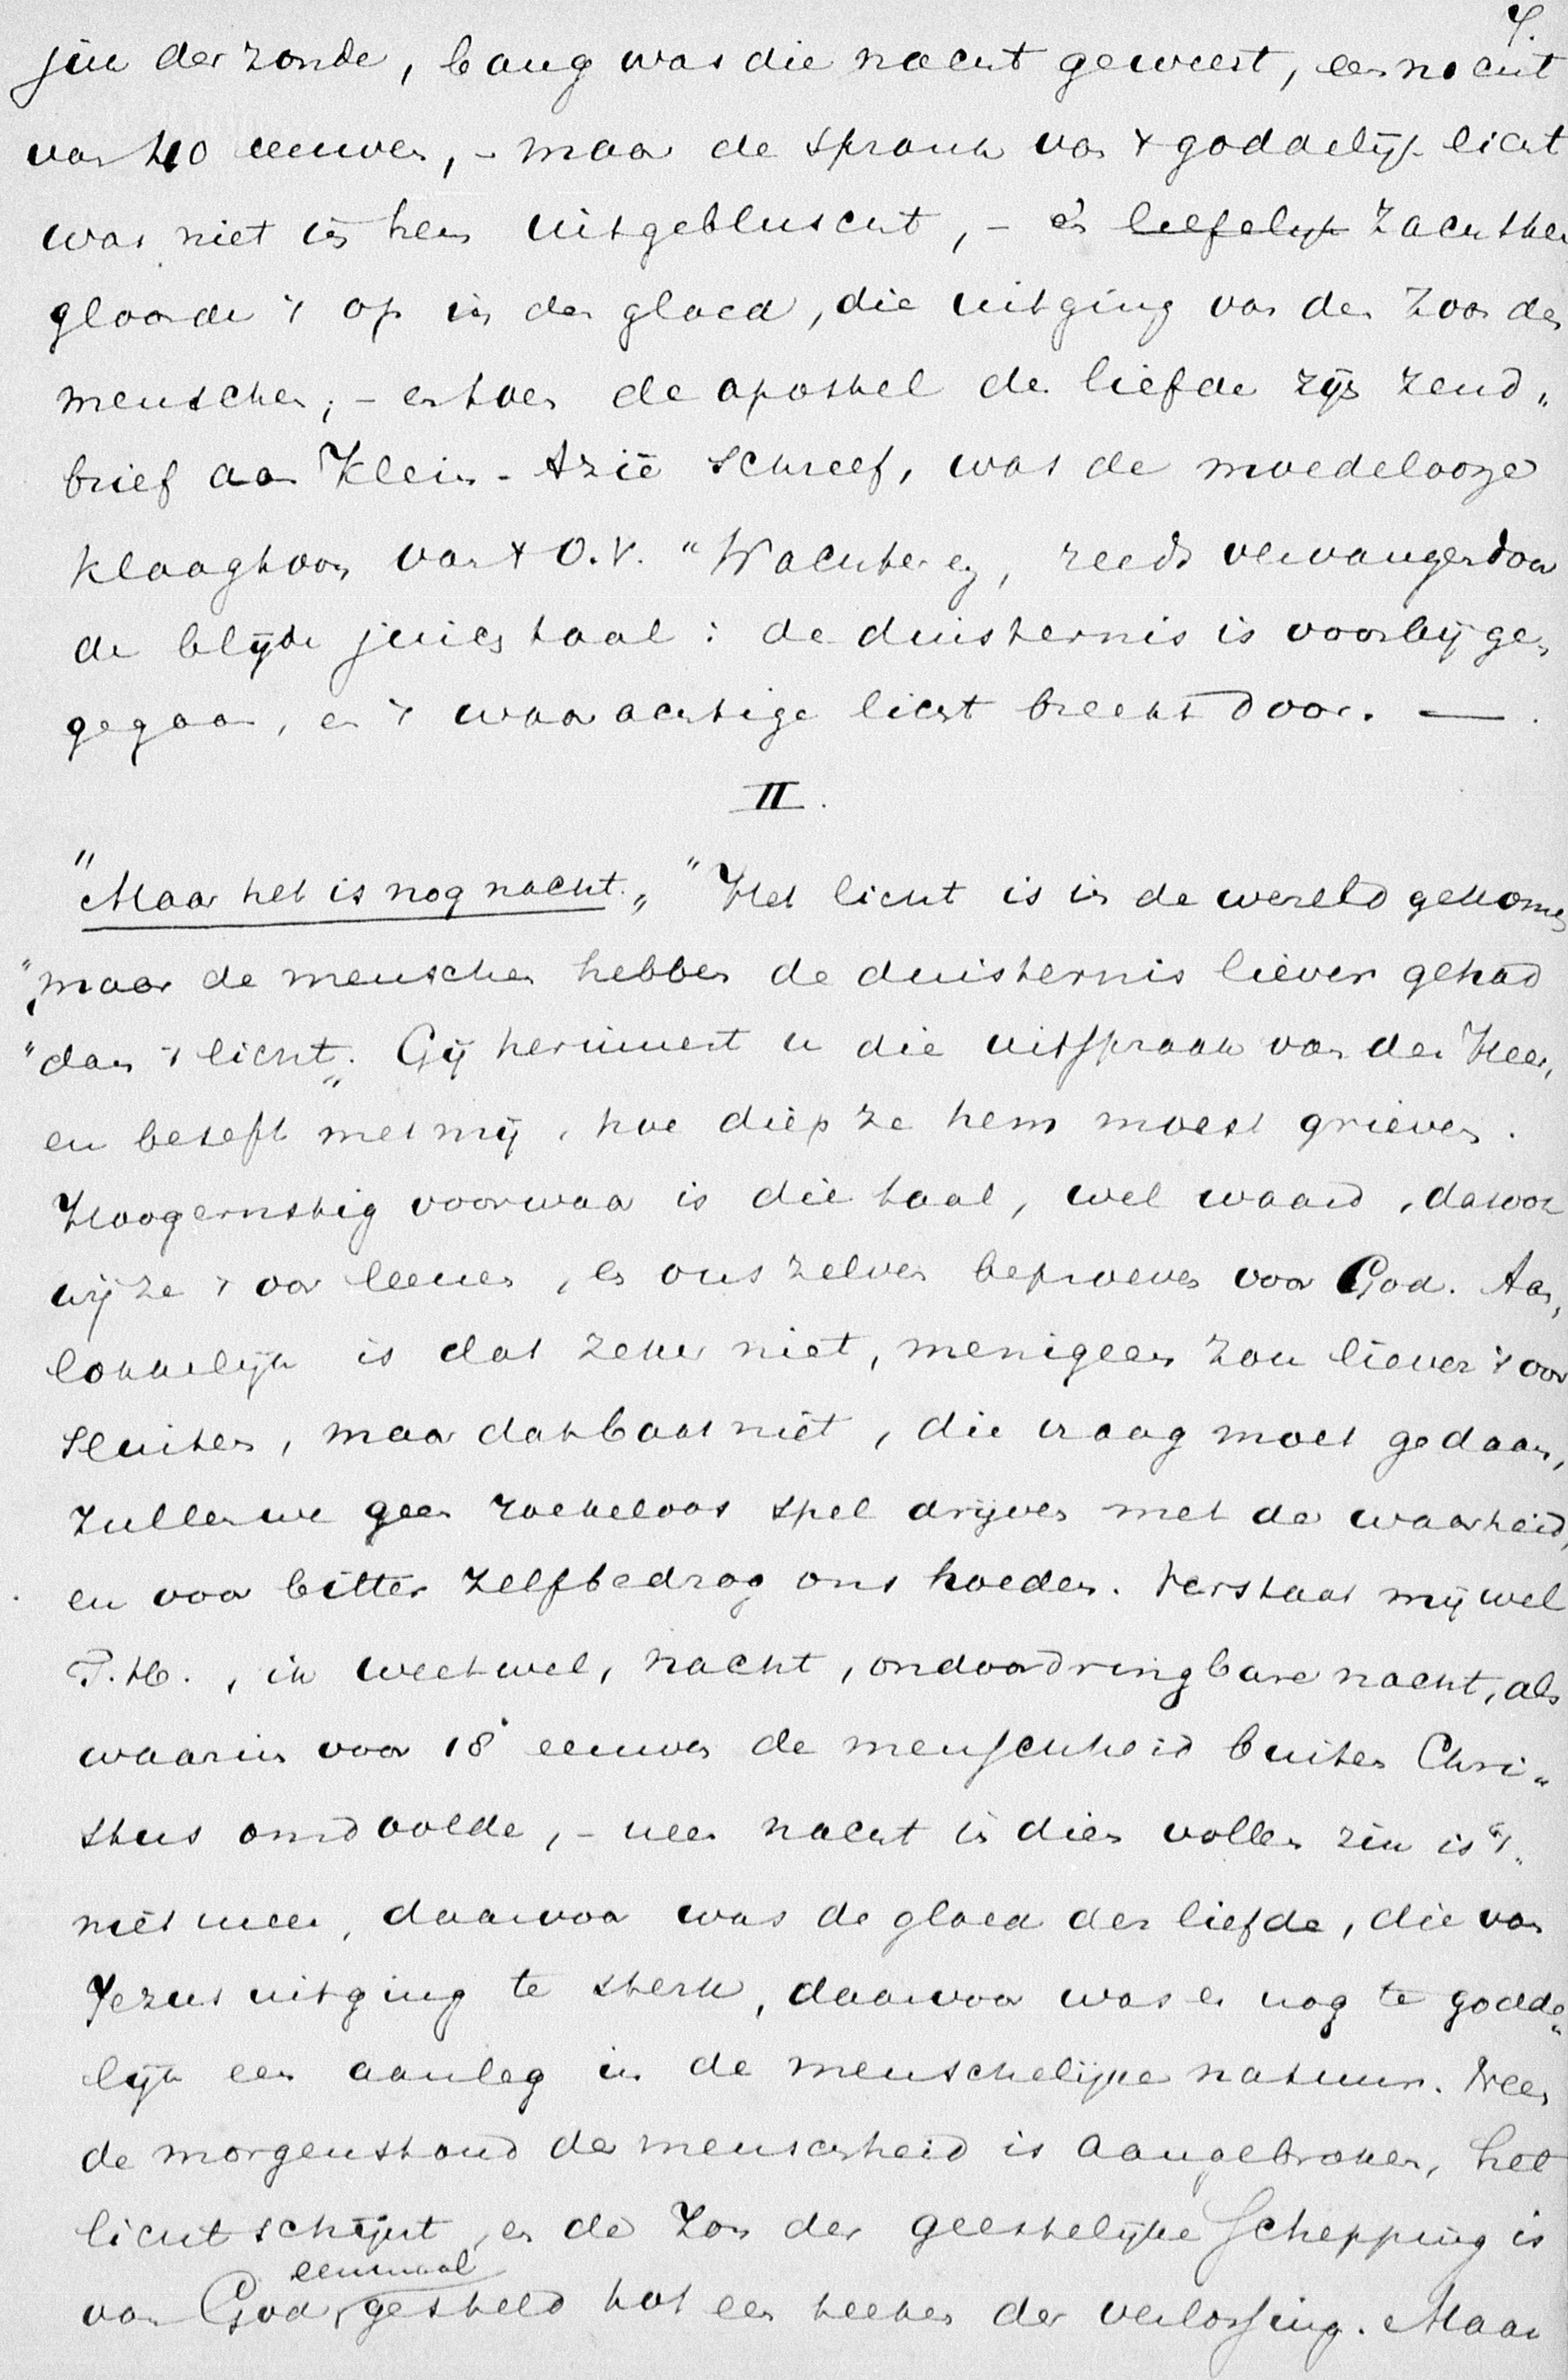 7.
jin der zonde, bang was die nacht geweest, een nacht
van 40 eeuwen, - maar de spronk van 't goddelijk licht
was niet in hen uitgebluscht, - en ~~liefelijk~~ zachtken
gloorde 't op in den gloed, die uitging van den Zoon des
menschen; - en toen de apostel der liefde zijn zend„
brief aan Klein-Azië schreef, was de moedelooze
klaagtoon van 't O.V. "Wachter enz, reeds vervangen door
de blijde juichtaal: de duisternis is voorbij ge„
gegaan, en 't waarachtige licht breekt door. —.
II.
"Maar het is nog nacht.„ "Het licht is in de wereld gekomen
"maar de menschen hebben de duisternis liever gehad
"dan 't licht.„ Gij herinnert u die uitspraak van den Heer,
en beseft met mij, hoe diep ze hem moest grieven.
Hoogernstig voorwaar is die taal, wel waard, dat ook
wij ze 't oor leenen, en ons zelven beproeven voor God. Aan„
lokkelijk is dat zeker niet, menigeen zou liever 't oor
sluiten, maar dat baat niet, die vraag moet gedaan,
zullen we geen roekeloos spel drijven met de waarheid,
en voor bitter zelfbedrog ons hoeden. Verstaat mij wel
T.H., ik weet wel, nacht, ondoordringbare nacht, als
waarin voor 18 eeuwen de menschheid buiten Chri„
stus omdoolde, - neen nacht in dien vollen zin is 't
niet meer, daarvoor was de gloed der liefde, die van
Jezus uitging te sterk, daarvoor was er nog te godde„
lijk een aanleg in de menschelijke natuur. Neen
de morgenstond der menschheid is aangebroken, het
licht schijnt, en de Zon der geestelijke schepping is
eenmaal
van God, gesteld tot een teeken der verlossing. Maar